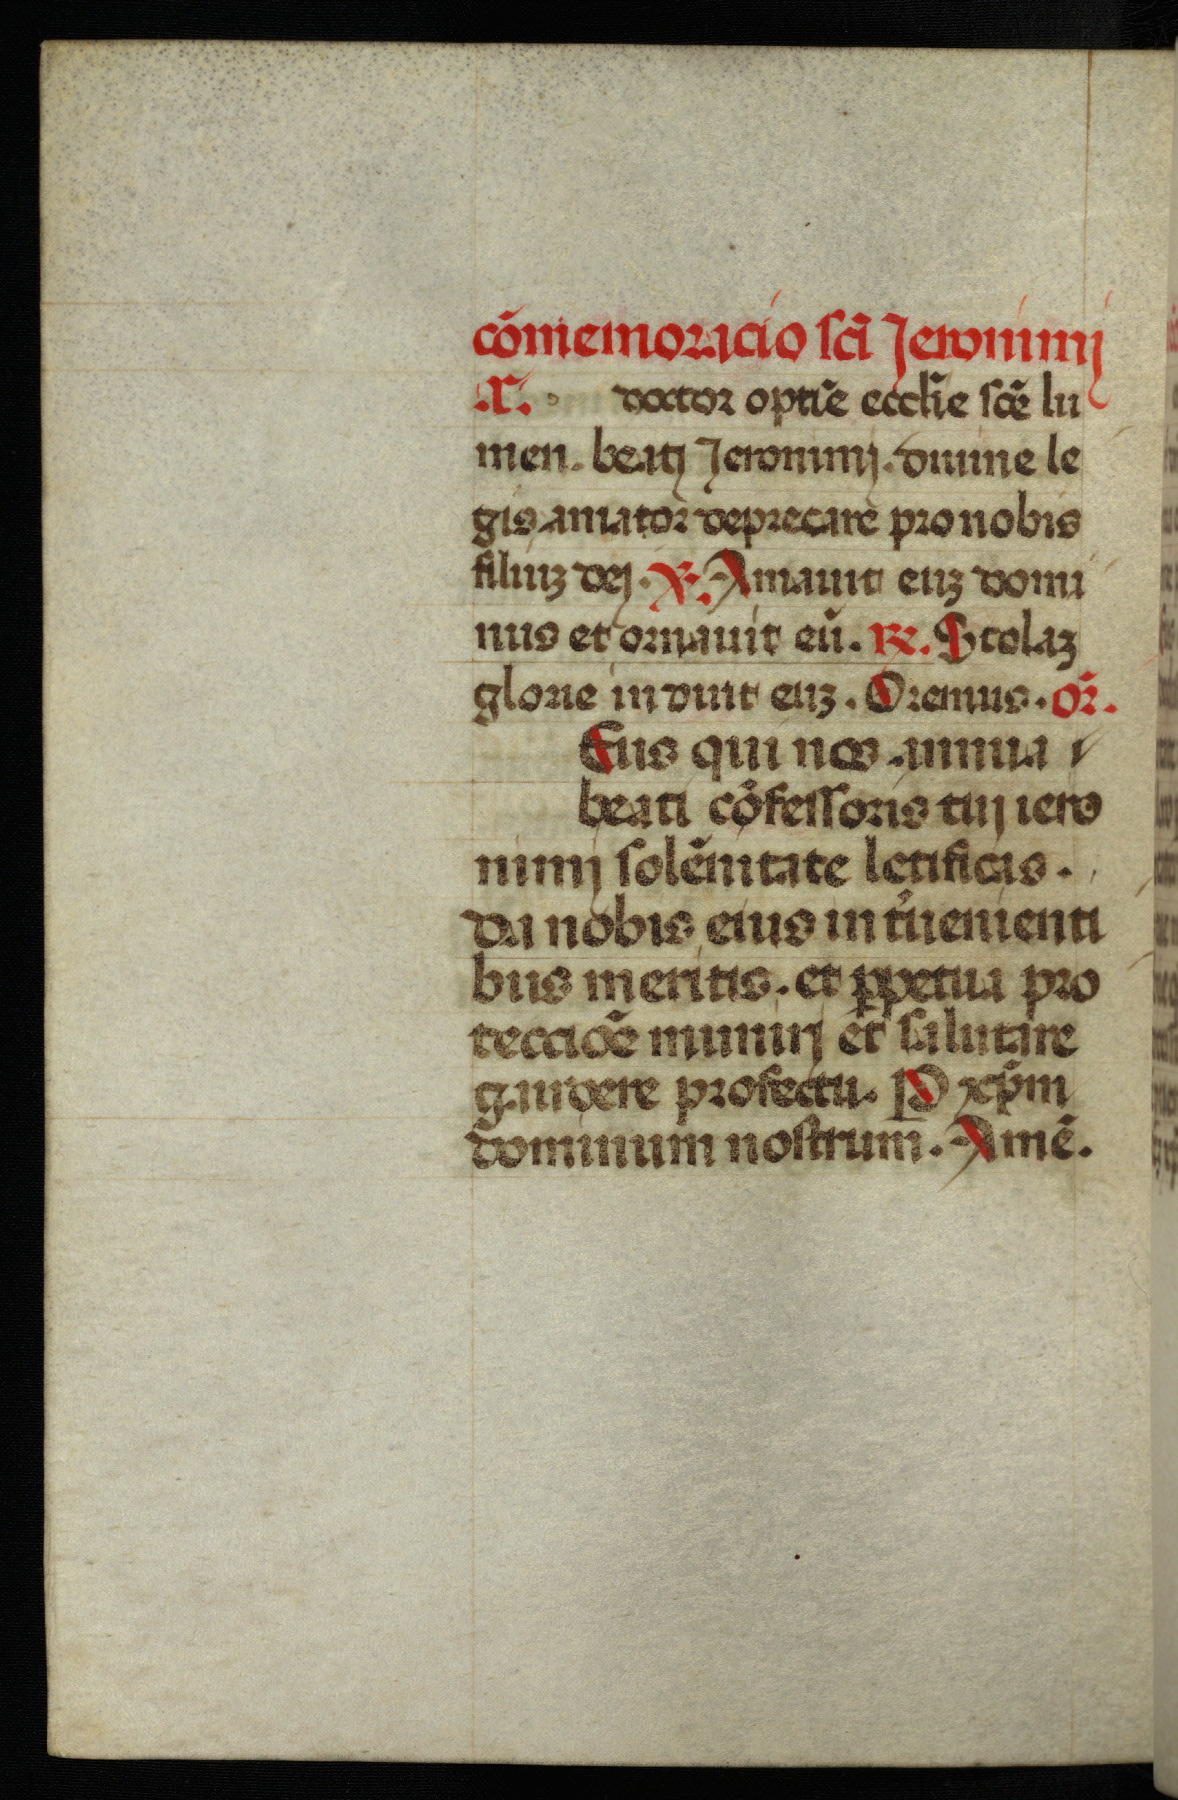 cōmemoracio sc̄i Jeronimij
A. doctor optīe eccl̄ie sc̄e lu
men. beatj Jeronimj. diuine le
gis amator deprecare pro nobis
filiuʒ dej. ℣. Amauit euʒ domi
nus et ornauit eū. ℞. Stolaʒ
glorie induit euʒ. Oremus. or̄.
Eus qui nos annua
beati cōfessoris tuj iero
nimj solēnitate letificas.
da nobis eius int̄uenienti
bus meritis. et ꝑpetua pro
teccioē munirj et salutare
gaudere profectu. P xp̄m
dominum nostrum. Amē.